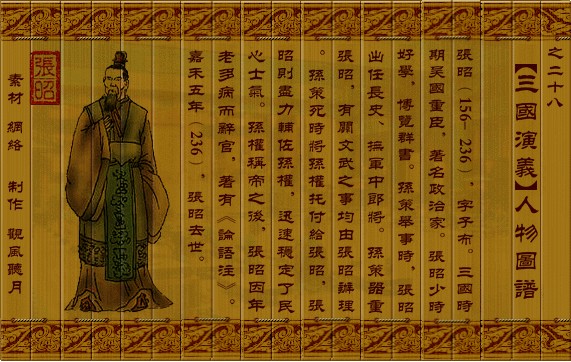 之二十八
【三國演義】人物圖譜
張昭（156—236），字子布。三國時
期吴國重臣，著名政治家。張昭少時
好學，博覽群書。孫策舉事時，張昭
出任長史、撫軍中郎將。孫策器重
張昭，有關文武之事均由張昭辦理
。孫策死時將孫權托付給張昭，張
昭則盡力輔佐孫權，迅速穩定了民
心士氣。孫權稱帝之後，張昭因年
老多病而辭官，著有《論語注》。
嘉禾五年（236），張昭去世。
張昭
素材 網絡 制作 觀風聽月